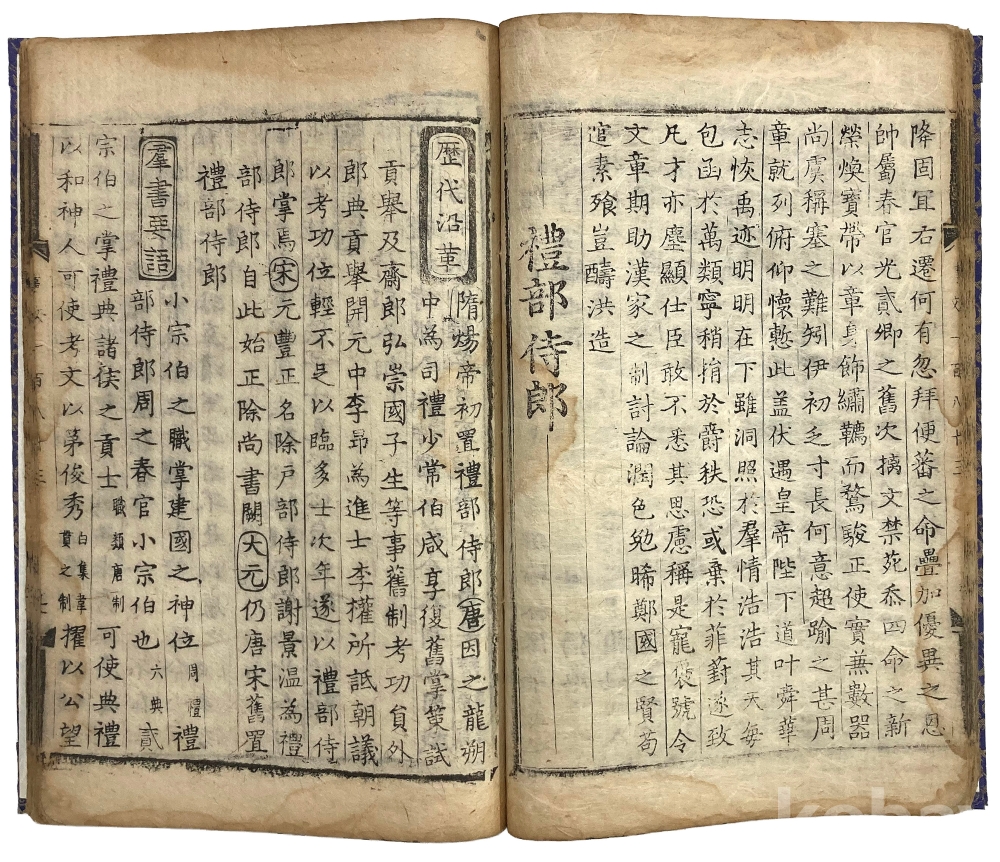 降固冝右遷何有忽拜便蕃之命疊加優異之恩
帥屬春官光貳卿之舊次摛文禁苑忝四命之新
榮煥寶帶以章身飾繡韉而騖駿正使實無數器
尚虞稱塞之難矧伊初乏寸長何意超踰之甚周
章就列俯仰懷慙此盖伏遇皇帝陛下道叶舜華
志恢禹迹明明在下雖洞照於羣情浩浩其天每
包函於萬類寧稍捐於爵秩恐或棄於菲葑遂致
凡才亦塵顯仕臣敢不悉其思慮稱是寵褒號令
文章期助漢家之制討論潤色勉晞鄭國之賢苟
逭素飱豈醻洪造
禮部侍郎
歷代沿革
隋煬帝初置禮部侍郎唐因之龍朔
中為司禮少常伯咸亨復舊掌䇿試
貢舉及齋郎弘崇國子生等事舊制考功員外
郎典貢舉開元中李昻為進士李權所詆朝議
以考功位輕不足以臨多士次年遂以禮部侍
郎掌焉宋元豐正名除户部侍郎謝景温為禮
部侍郎自此始正除尚書闕大元仍唐宋舊置
禮部侍郎
羣書要語
小宗伯之職掌建國之神位周禮禮
部侍郎周之春官小宗伯也六典貳
宗伯之掌禮典諸侯之貢士職類唐制可使典禮
以和神人可使考文以苐俊秀白集韋貫之制擢以公望